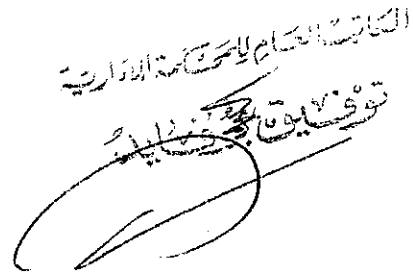 الكاتب العام للمحكمة الادارية
توفيق